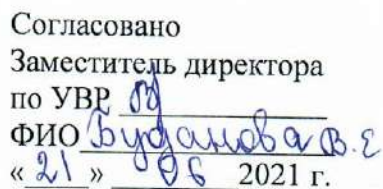 Согласовано
Заместитель директора
по УВР
ФИО Буданова В.Е
« 21 » 06 2021 г.